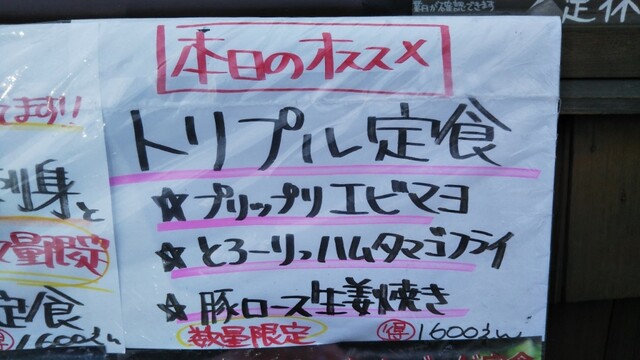 本日のオススメ
トリプル定食
☆プリップリエビマヨ
☆とろーりっハムタマゴフライ
☆豚ロース生姜焼き
数量限定 得 1600えん
刺身と
数量限定
定食
得 1600えん
定休